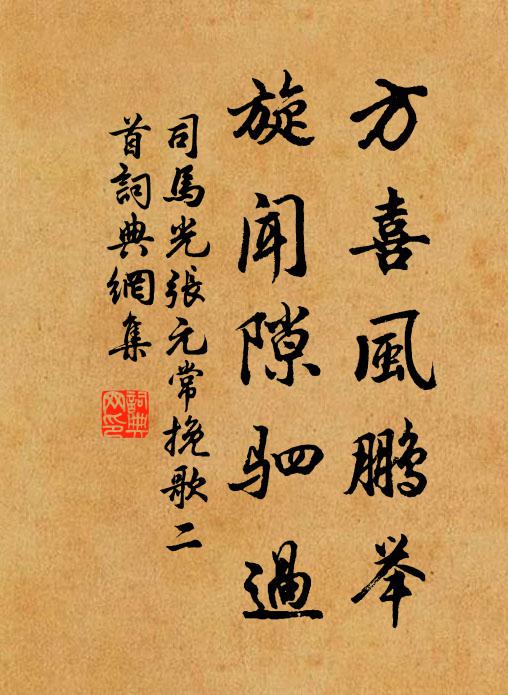 方喜風鹏举
旋闻隙驷過
司馬光張元常挽歌二
首詞典網集
詞典
网印